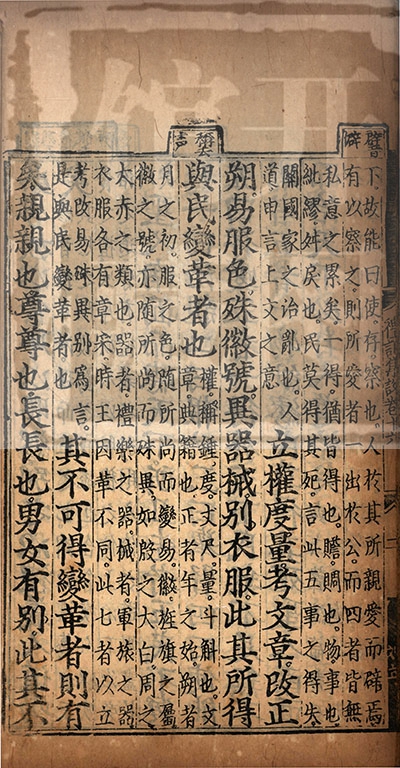 譬
僻
下故能曰使存察也人於其所親愛而辟焉
有以察之則所愛者一出於公而四者皆無
私意之累矣一得猶皆得也贍賙也物事也
紕繆舛戾也民莫得其死言此五事之得失
關國家之治亂也人
道申言上文之意
立權度量考文章改正
朔易服色殊徽號異器械別衣服此其所得
與民變革者也
權稱錘度丈尺量斗斛也文
章典籍也正者年之始朔者
月之初服之色隨所尚而變易徽旌旗之屬
徽之號亦隨所尚而殊異如殷之大白周之
大赤之類也器者禮樂之器械者軍旅之器
衣服各有章采時王因革不同此七者以立
考改易殊異別爲言
是與民變革者也
其不可得變革者則有
矣親親也尊尊也長長也男女有別此其不